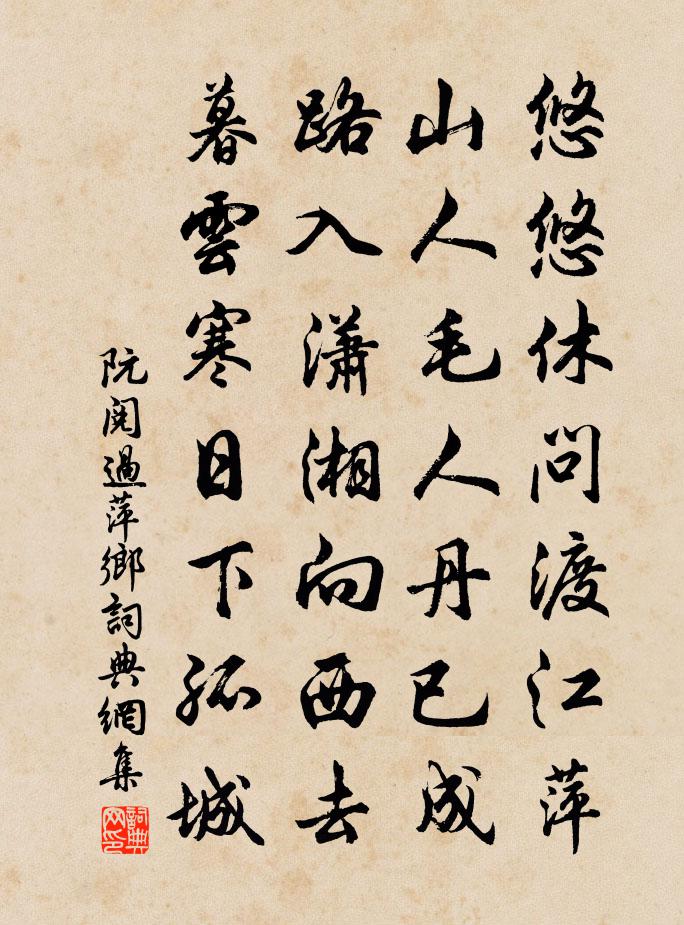 悠悠休問渡江萍
山人毛人丹已成
路入瀟湘向西去
暮雲寒日下孤城
阮閱過萍鄉詞典網集
詞典网印